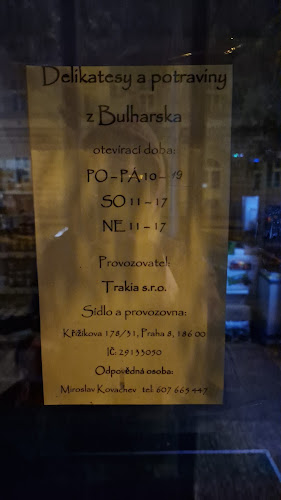 Delikatesy a potraviny
z Bulharska
otevírací doba:
PO – PÁ 10 – 19
SO 11 – 17
NE 11 – 17
Provozovatel:
Trakia s.r.o.
Sídlo a provozovna:
Křižíkova 178/31, Praha 8, 186 00
IČ: 29133050
Odpovědná osoba:
Miroslav Kovachev tel: 607 665 447